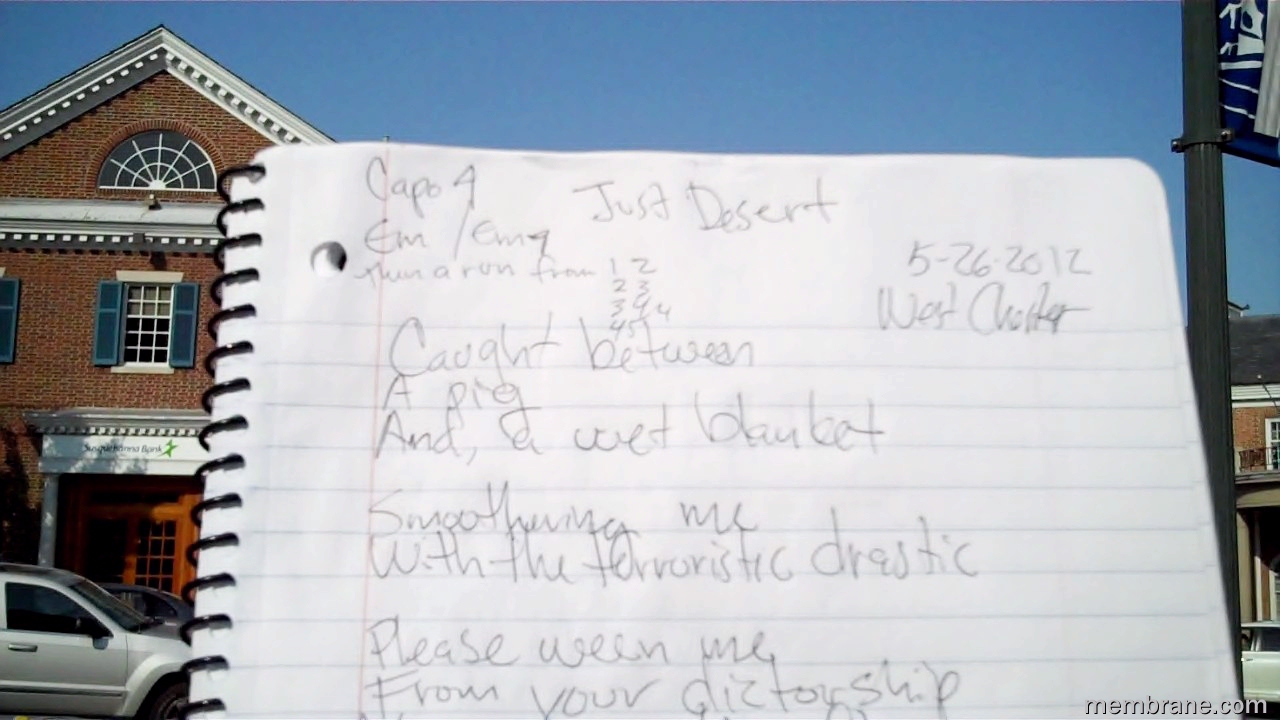 Capo 4
Just Desert
Em / Em7
then a run from 1 2
2 3
3 4 4
4 5
5-26-2012
West Chester
Caught between
A pig
And, a wet blanket
Smoothering me
With the terroristic drastic
Please ween me
From your dictorship
Susquehanna Bank
membrane.com